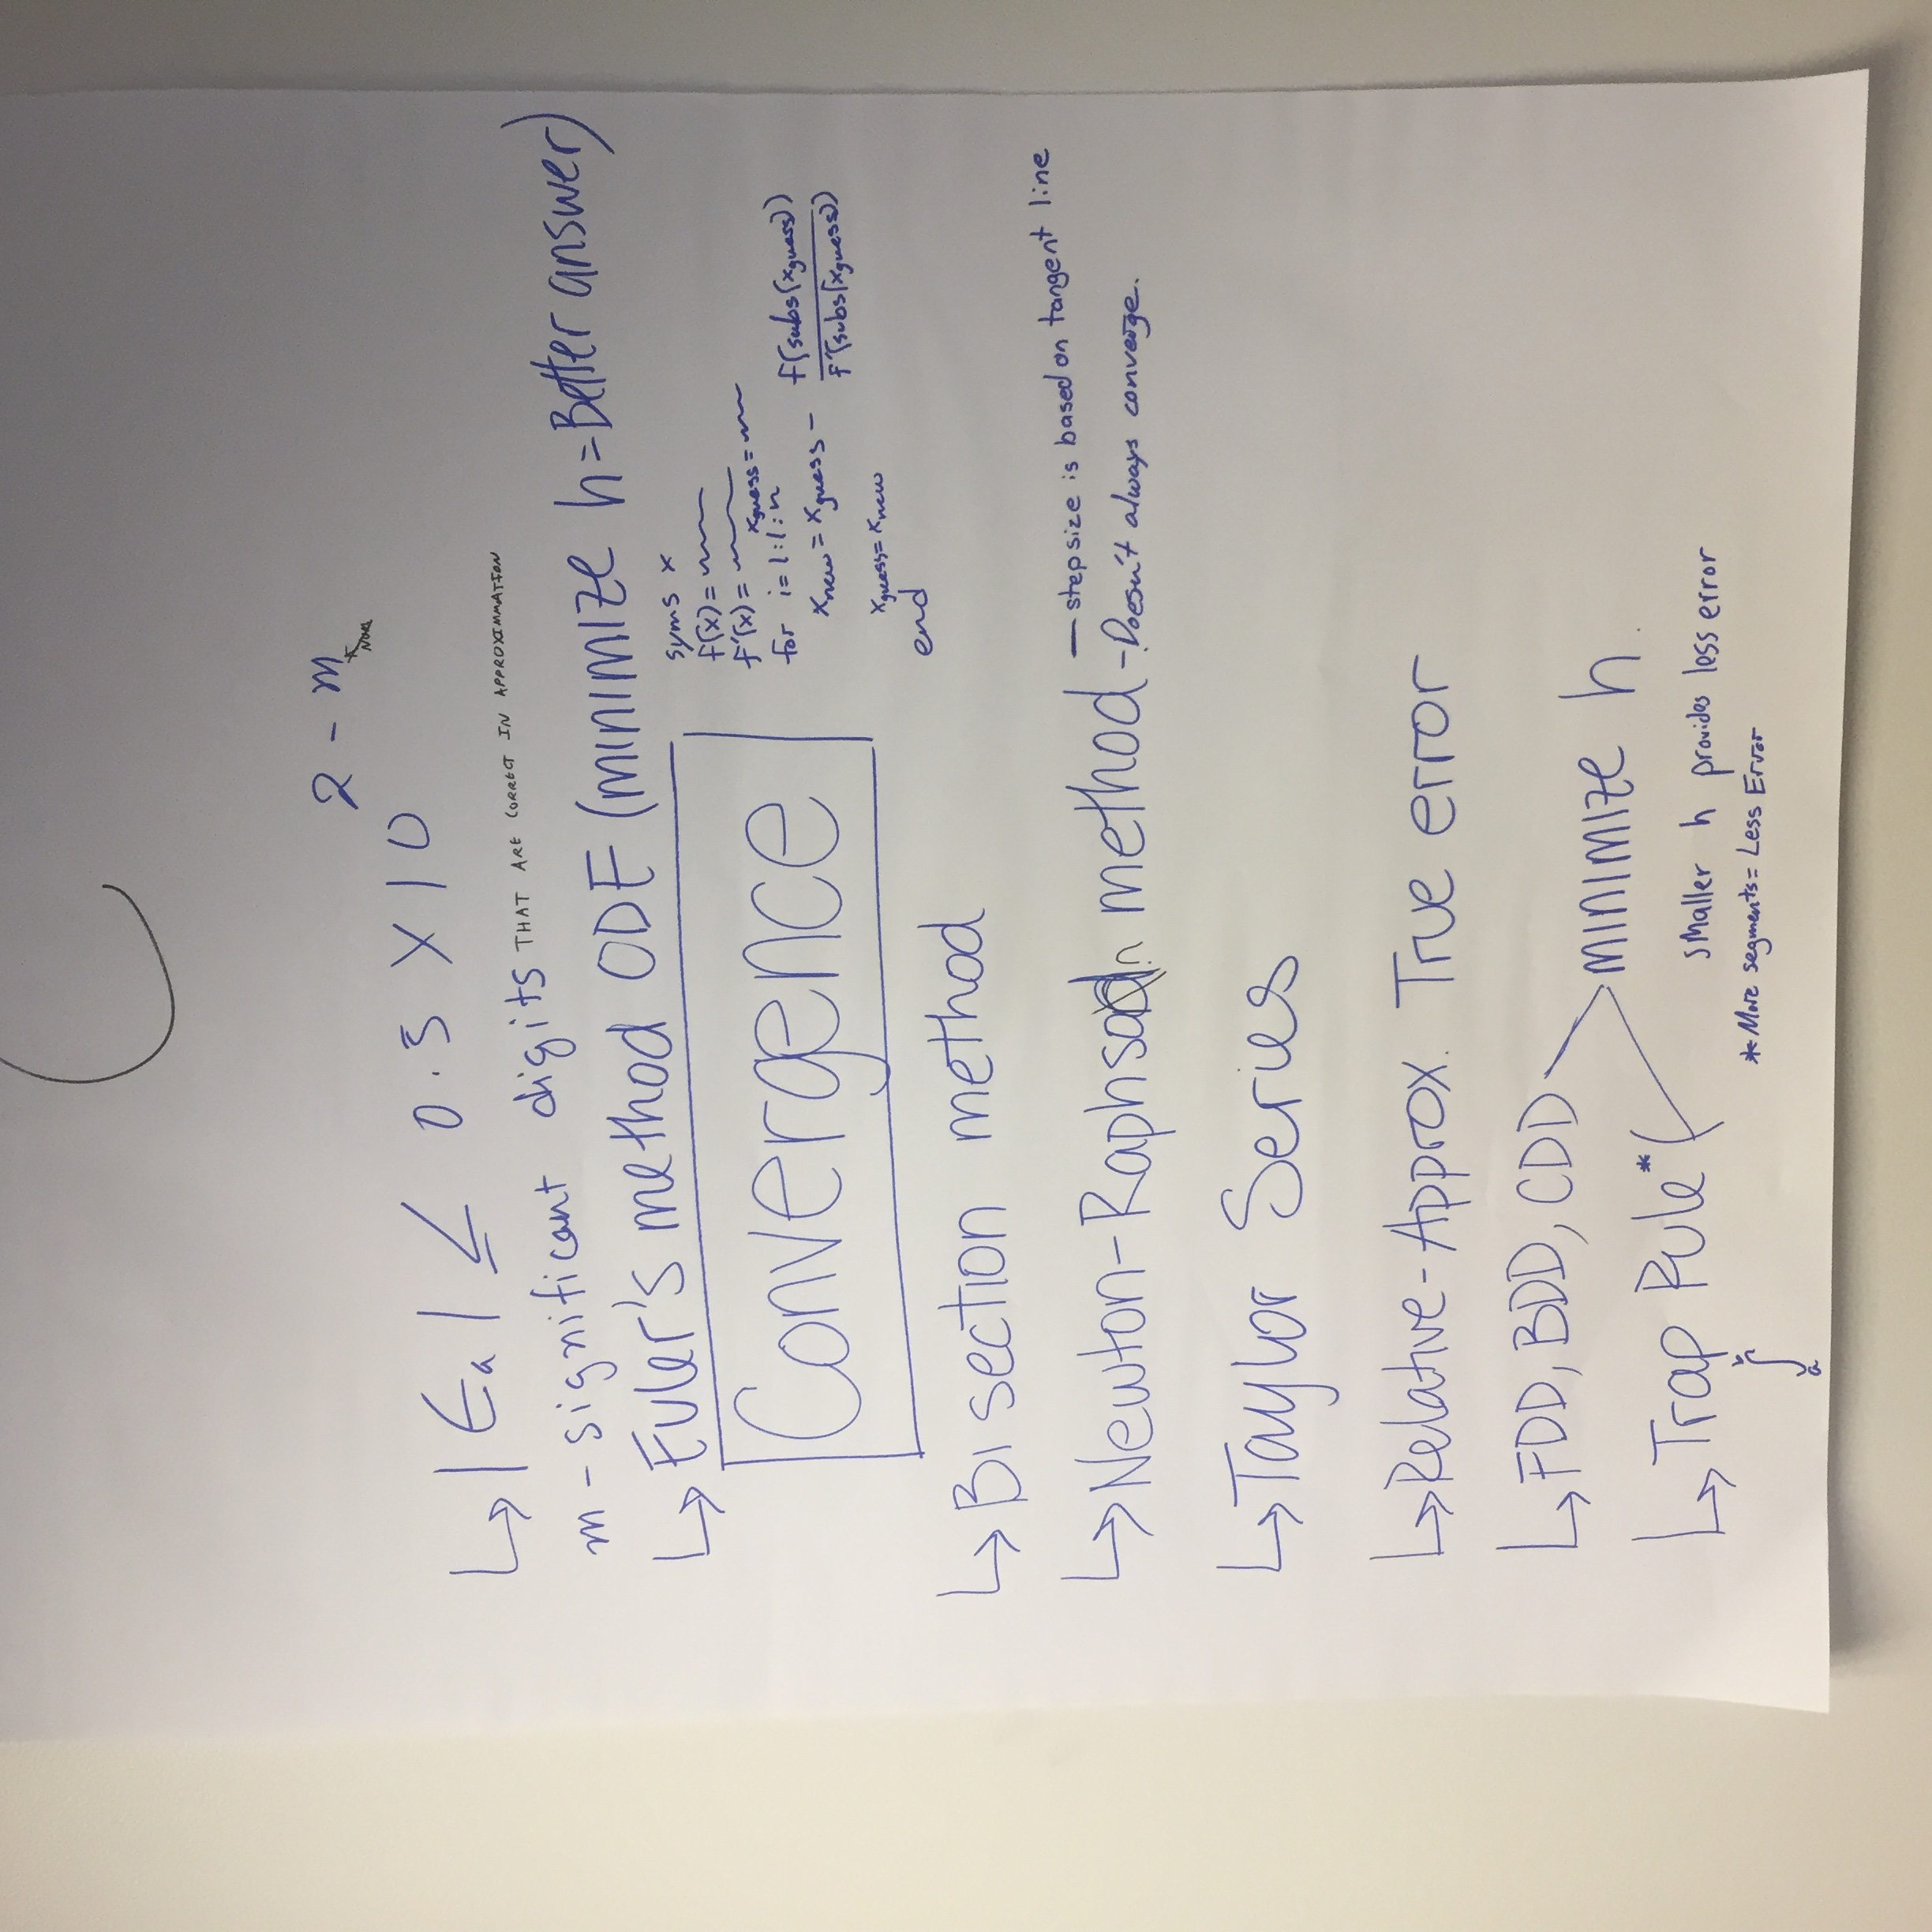 ↳ |Ea| ≤ 0.5 X 10^2-m
m - significant digits THAT ARE CORRECT IN APPROXIMATION
↳ Euler's method ODE (minimize h = Better answer)
Convergence
syms x
f(x) =
f'(x) =
xguess =
for i=1:1:n
xnew = xguess - f(subs(xguess)) / f'(subs(xguess))
xguess = xnew
end
↳ Bisection method
↳ Newton-Raphson method
— step size is based on tangent line
- Doesn't always converge.
↳ Taylor Series
↳ Relative-Approx. True error
↳ FDD, BDD, CDD > minimize h
↳ Trap Rule*
smaller h provides less error
* More segments = Less Error